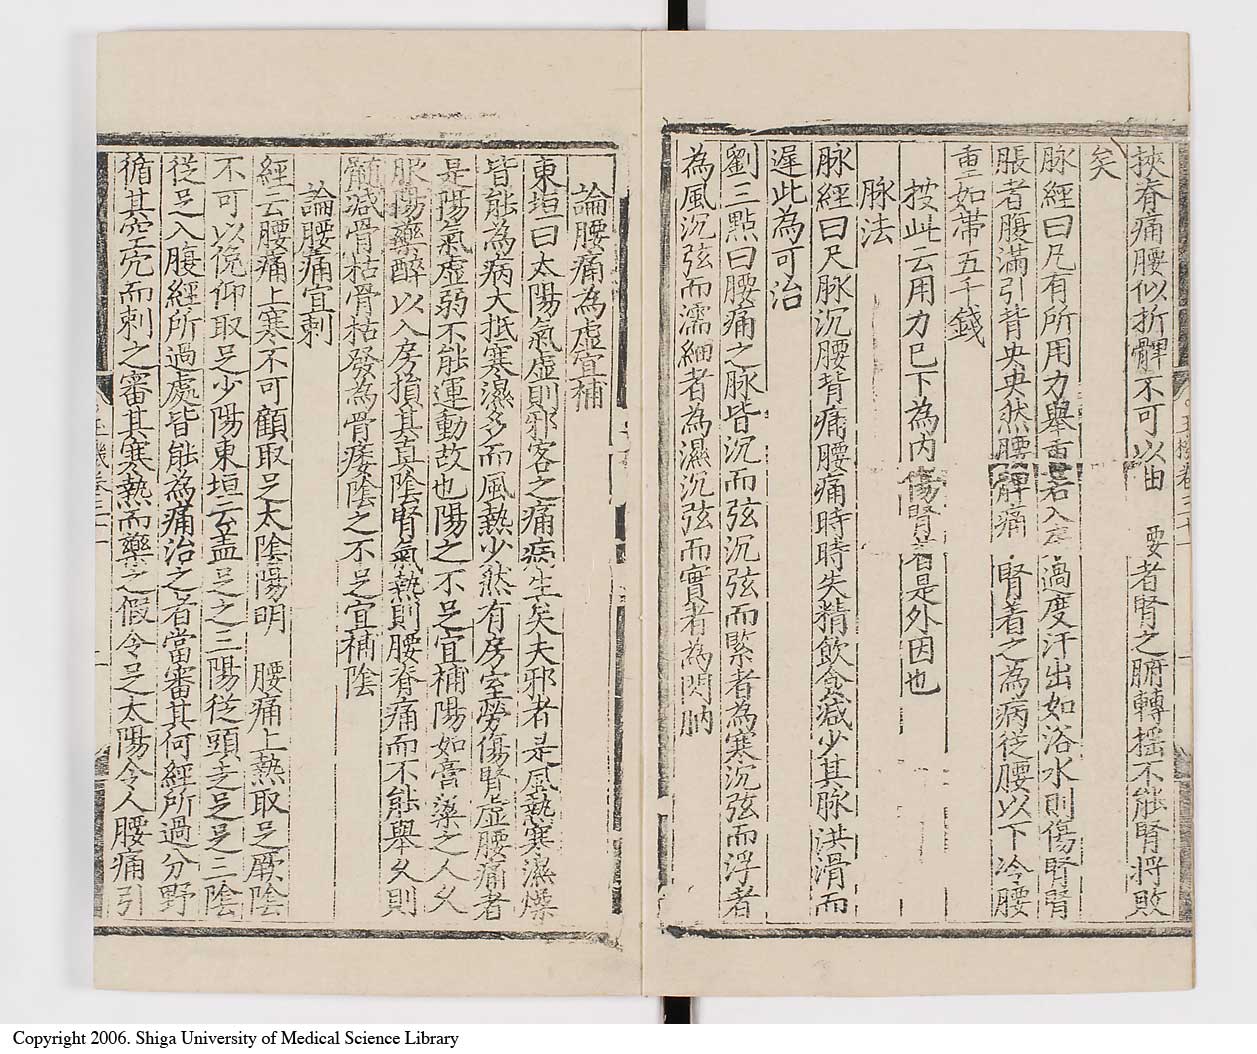 挾脊痛腰似折髀不可以曲 要者腎之腑轉揺不能腎將敗
矣
脉經曰凡有所用力舉重若入房過度汗出如浴水則傷腎腎
脹者腹滿引背央央然腰髀痛腎着之為病從腰以下冷腰
重如帶五千錢
按此云用力已下為内傷腎者是外因也
脉法
脉經曰尺脉沉腰背痛腰痛時時失精飲食减少其脉洪滑而
遲此為可治
劉三點曰腰痛之脉皆沉而弦沉弦而緊者為寒沉弦而浮者
為風沉弦而濡細者為濕沉弦而實者為閃肭
論腰痛為虚宜補
東垣曰太陽氣虚則邪客之痛病生矣夫邪者是風熱寒濕燥
皆能為病大抵寒濕多而風熱少然有房室勞傷腎虚腰痛者
是陽氣虚弱不能運動故也陽之不足宜補陽如膏粱之人久
服陽藥醉以入房損其真陰腎氣熱則腰脊痛而不能舉久則
髓减骨枯骨枯發為骨痿陰之不足宜補陰
論腰痛宜刺
經云腰痛上寒不可顧取足太陰陽明 腰痛上熱取足厥陰
不可以俛仰取足少陽東垣云盖足之三陽從頭走足足三陰
從足入腹經所過處皆能為痛治之者當審其何經所過分野
循其空穴而刺之審其寒熱而藥之假令足太陽令人腰痛引
Copyright 2006. Shiga University of Medical Science Library